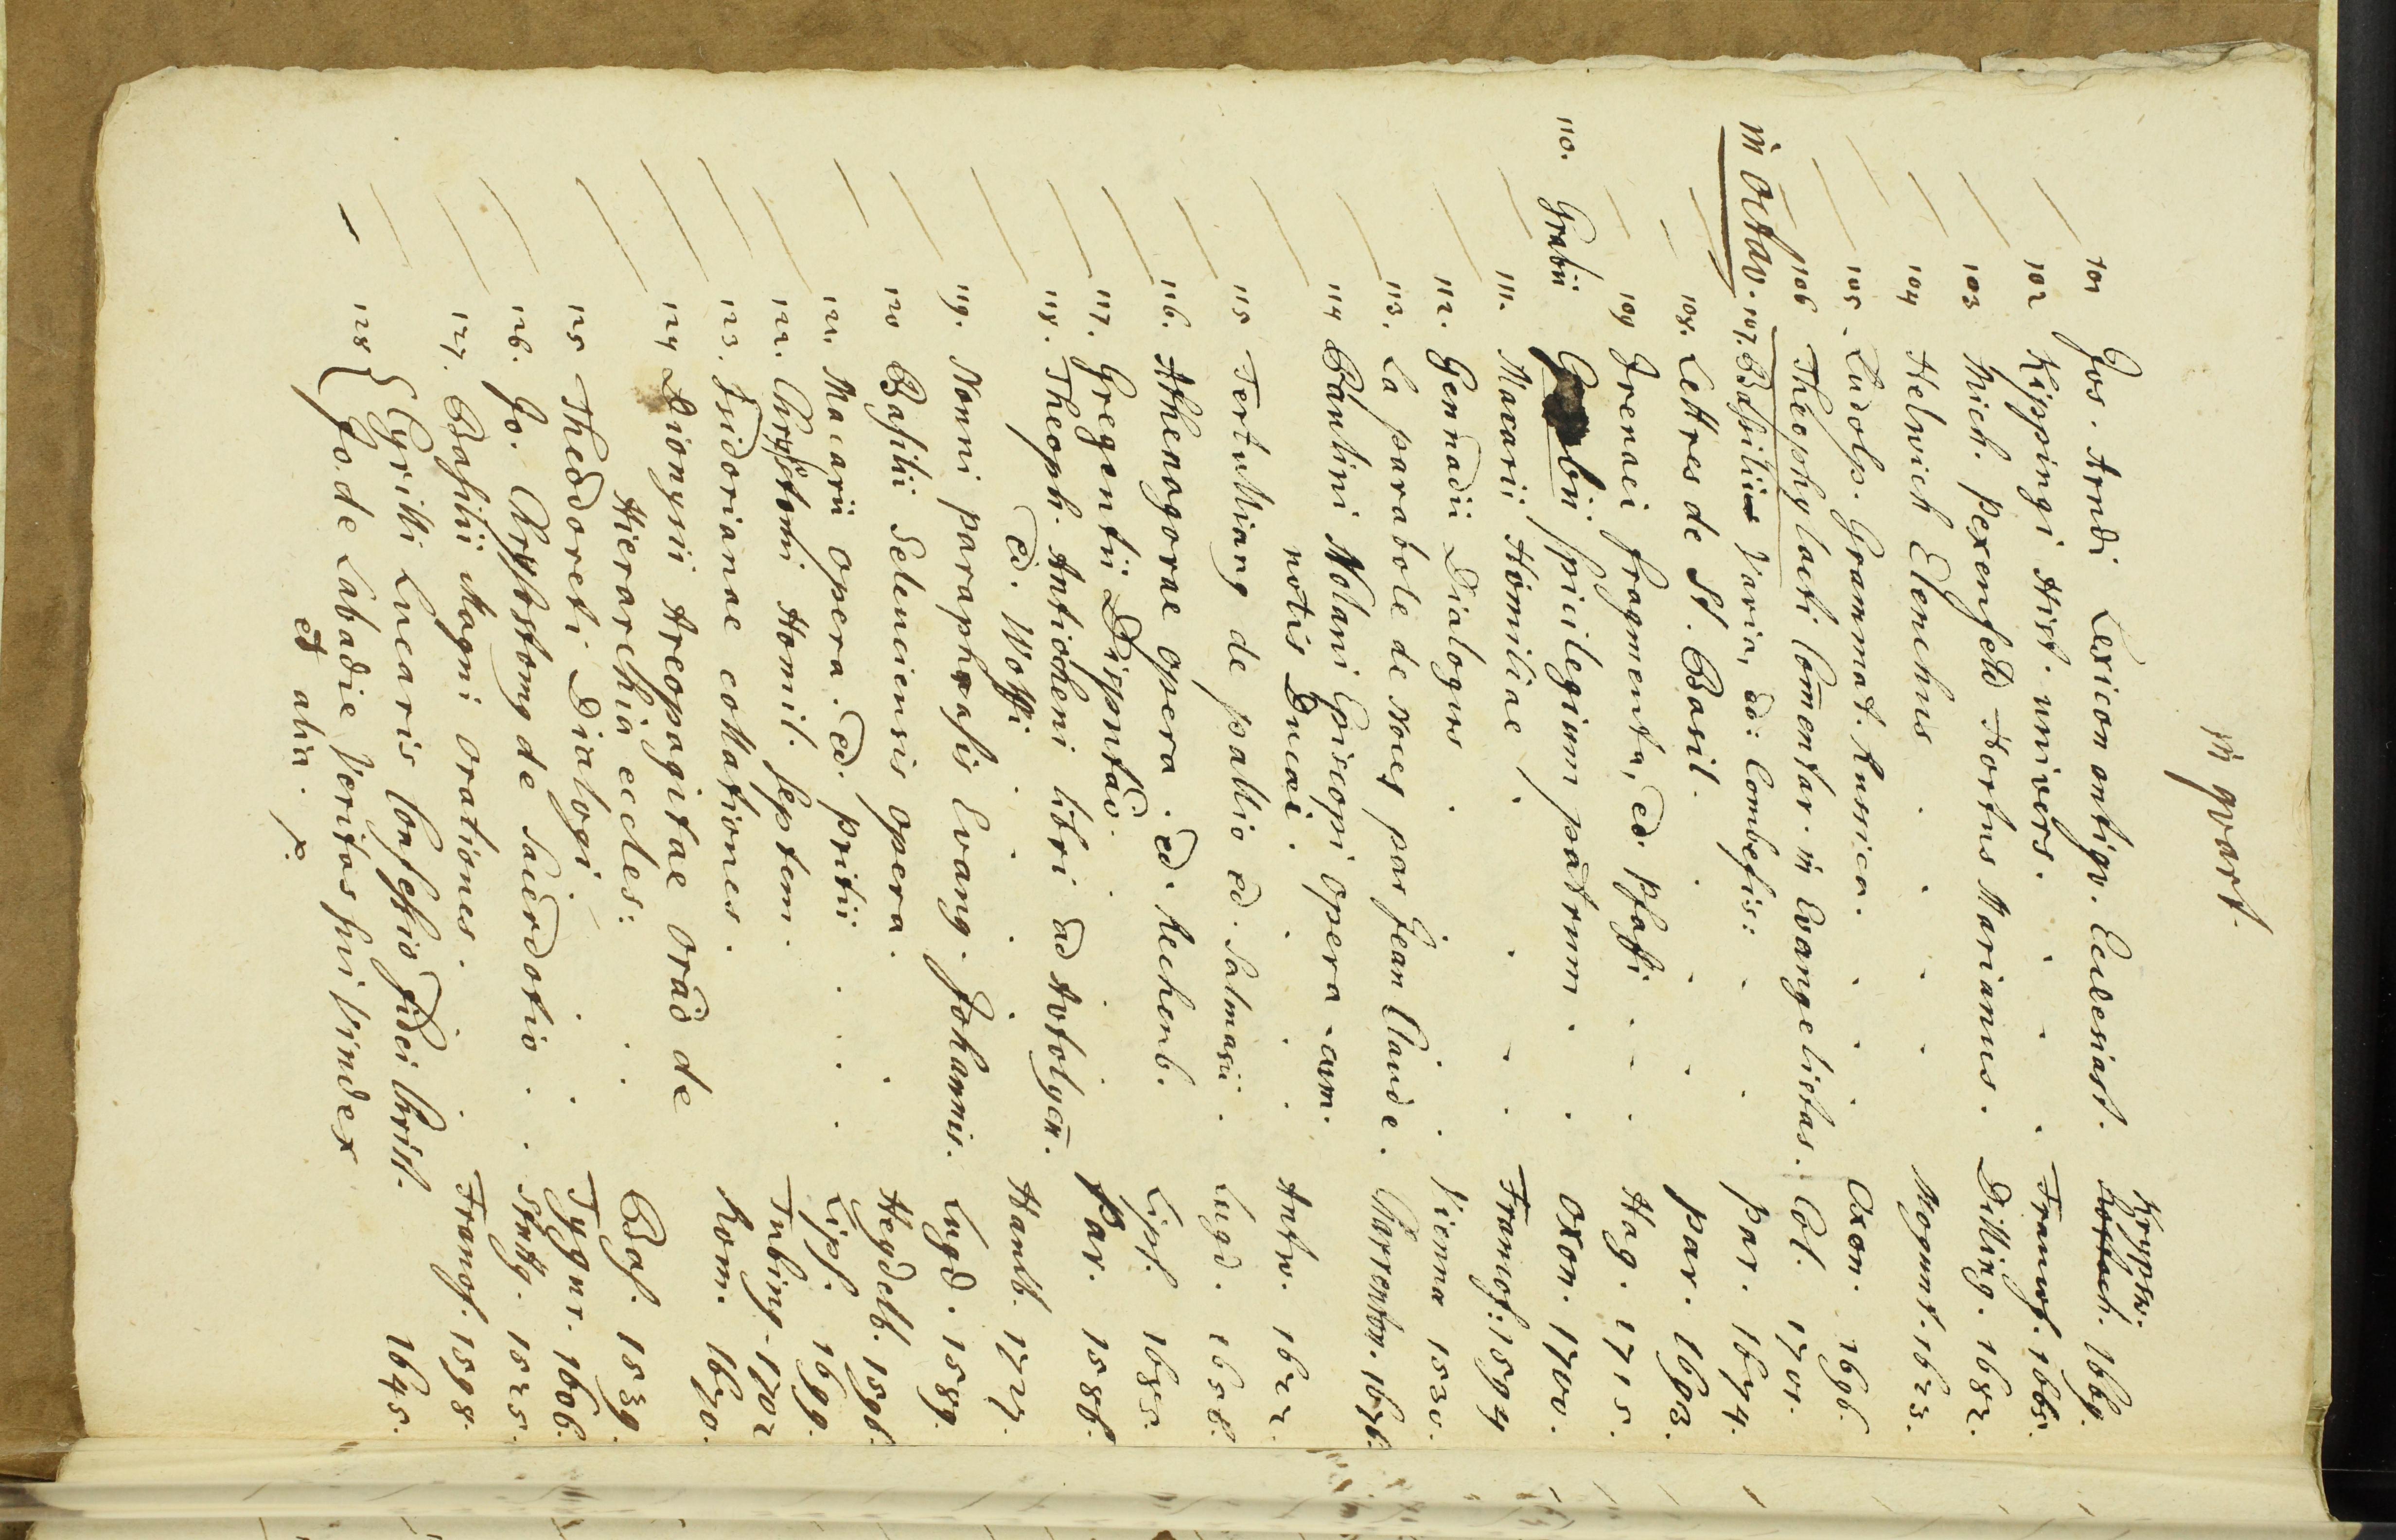 in qvart.
101 Jos. Arndi Lexicon antiqv. Ecclesiast. Gryphiv. 1669.
102 Kippingi Hist. univers. . . . Francof. 1665.
103 Mich. Pexenfeld Hortus Marianus. Dilling. 1682.
104 Helwich Elenchus . . . . Mogunt. 1623.
105. Ludolp. Grammat. Russica. . . . Oxon. 1696.
106 Theophylacti Com̄entar. in Evangelistas. Col. 1701.
in Octav. 107. Basilii Varia, ed: Combefis: . . Par. 1674.
108. Lettres de St. Basil. . . . Par. 1693.
109 Irenaei fragmenta, ed. Pfaffi . . . Hag. 1715.
110. Grabii Spicilegium patrum . . Oxon. 1700.
111. Macarii Homiliae . . . . Francof: 1594
112. Gennadii Dialogus . . . Vienna 1530.
113. La parabole de Noces par Jean Claude. Charenton. 1676.
114 Paulini Nolani Episcopi opera cum.
notis Ducaei. . . . Antw. 1622.
115 Tertullianq de pallio ed. Salmasii. . Lugd. 1656.
116. Athenagorae opera. ed. Rechenb. Lips. 1685.
117. Gregentii Disputao. . . . Par. 1586.
118. Theoph. Antiocheni libri ad Avtolycū.
ed. Wolffi . . . . Hamb. 1727.
119. Nonni paraphrasis Evang. Johannis. Lugd. 1589.
120 Basilii Seleuciensis opera. . . Heydelb. 1596.
121. Macarii opera. ed. Pritii . . . Lips. 1699.
122. Chrysostomi Homil. septem. Tubing. 1702
123. Isidorianae collationes. Rom. 1670.
124 Dionysii Areopagitae orao de
Hierarchia eccles: . . . Bas. 1539.
125 Theodoreti Dialogi . . . Tygur. 1606.
126. Jo. Chrysostomq de Sacerdotio . . Stuttg. 1525.
127. Basilii Magni orationes. . . Francof. 1598.
128 { Cyrilli Lucaris Confessio fidei Christ. 1645.
Jo. de Labadie Veritas sui Vindex
et alia.